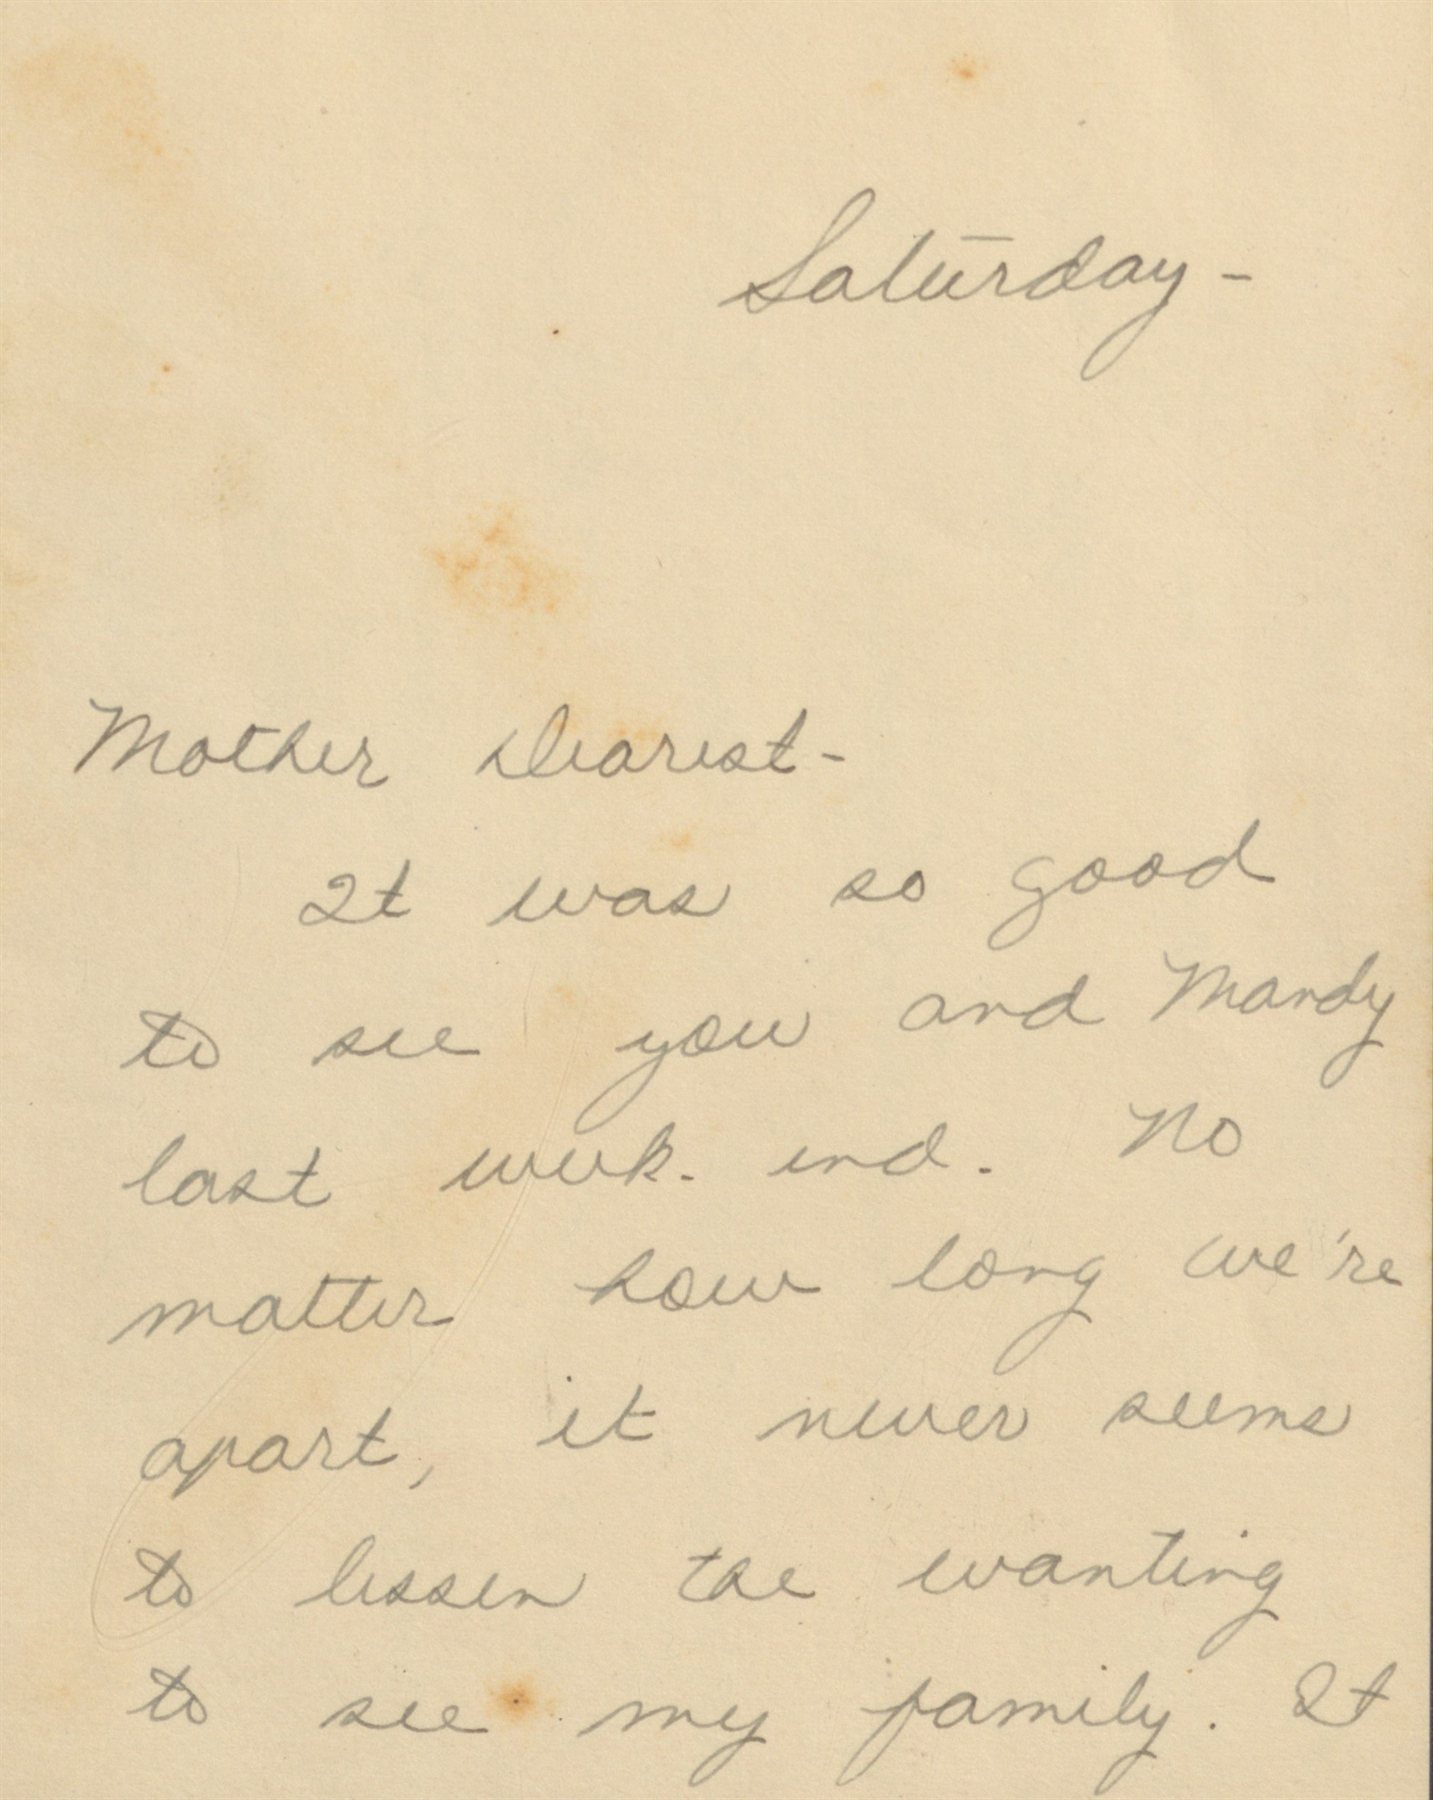 Saturday -
Mother Dearest -
It was so good
to see you and Mandy
last week-end. No
matter how long we're
apart, it never seems
to lessen the wanting
to see my family. It